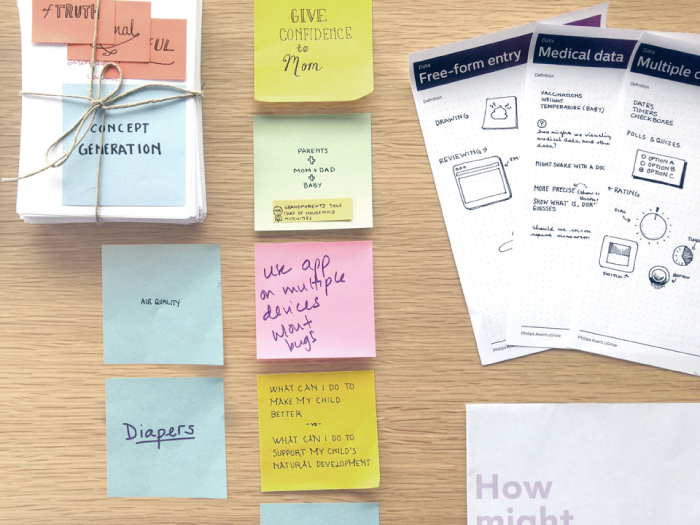 of TRUTH
CONCEPT
GENERATION
GIVE
CONFIDENCE
to
Mom
PARENTS
+
MOM + DAD
+
BABY
GRANDPARENTS TAKE
CARE OF HOUSEHOLD
ACTIVITIES
AIR QUALITY
use app
on multiple
devices
wout
bugs
Diapers
WHAT CAN I DO TO
MAKE MY CHILD
BETTER
- vs -
WHAT CAN I DO TO
SUPPORT MY CHILD'S
NATURAL DEVELOPMENT
Data
Free-form entry
Definition
DRAWING
REVIEWING
Data
Medical data
Definition
VACCINATIONS
WEIGHT
TEMPERATURE (BABY)
?
how might we visualize
medical data and other
data?
MIGHT SHARE WITH A DOC
MORE PRECISE
SHOW WHAT IS, DON'
GUESSES
should we
Philips Avent uGrow
Data
Multiple
Definition
DATES
TIMERS
CHECKBOXES
POLLS & QUIZES
OPTION A
OPTION B
OPTION C
RATING
DIAL
SWITCH
BUTTON
Philips Avent uGrow
How
might